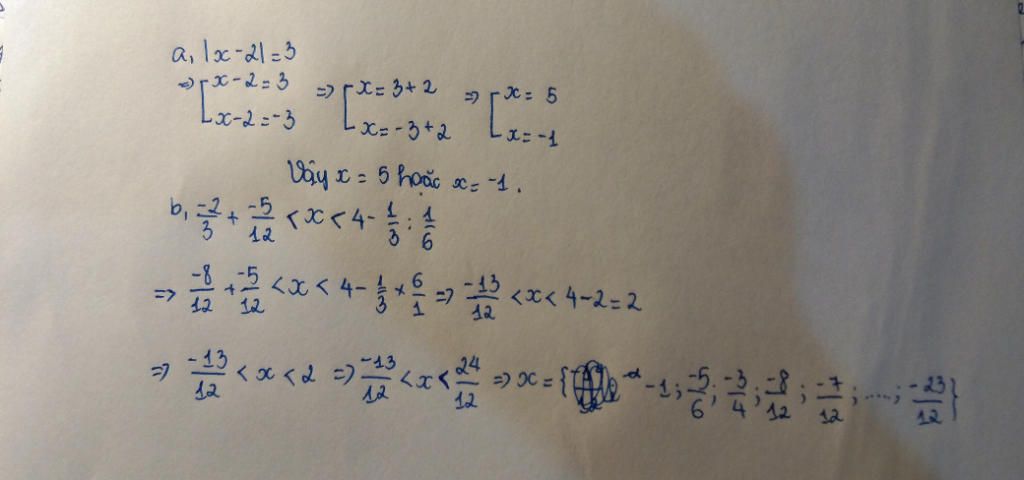 a, |x-2| = 3
=> [ x-2 = 3 ; x-2 = -3 => [ x = 3+2 ; x = -3+2 => [ x = 5 ; x = -1
Vậy x = 5 hoặc x = -1.
b, -2/3 + -5/12 < x < 4 - 1/3 : 1/6
=> -8/12 + -5/12 < x < 4 - 1/3 × 6/1 => -13/12 < x < 4-2 = 2
=> -13/12 < x < 2 => -13/12 < x < 24/12 => x = { -1; -5/6; -3/4; -8/12; -7/12; ....; -23/12 }